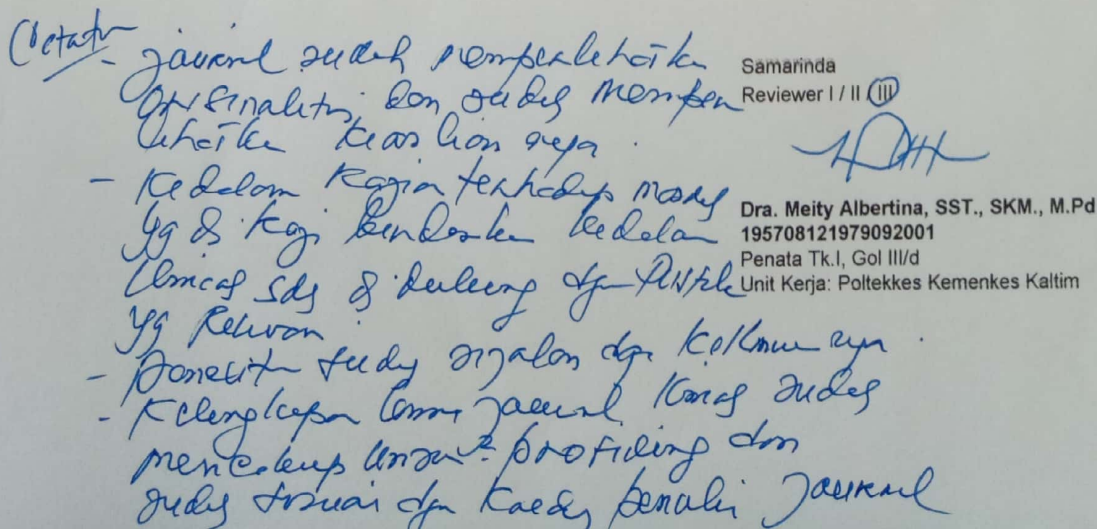 Catatan
- Jaurnal sudah memperlihatka
orisinalitas dan sudah mempe
lihatka keaslian nya.
- Kedalam kajian terhadap
yg di kaji kedalam
ilmiah sdh di dukung dgn Artikel
yg Relevan
- Peneliti sudah sejalan dgn keilmuan nya.
- Kelengkapan jaurnal ilmiah sudah
mencakup unsur² profiding dan
sudah sesuai dgn kaedah penulis Jaurnal
Samarinda
Reviewer I / II / III
Dra. Meity Albertina, SST., SKM., M.Pd
195708121979092001
Penata Tk.I, Gol III/d
Unit Kerja: Poltekkes Kemenkes Kaltim